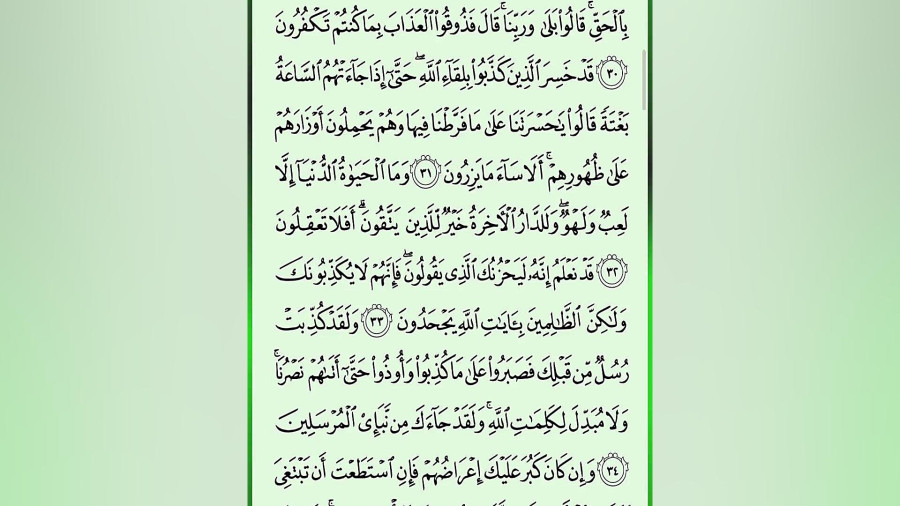 بِٱلْحَقِّ ۚ قَالُوا۟ بَلَىٰ وَرَبِّنَا ۚ قَالَ فَذُوقُوا۟ ٱلْعَذَابَ بِمَا كُنتُمْ تَكْفُرُونَ
٣٠ قَدْ خَسِرَ ٱلَّذِينَ كَذَّبُوا۟ بِلِقَآءِ ٱللَّهِ ۖ حَتَّىٰٓ إِذَا جَآءَتْهُمُ ٱلسَّاعَةُ
بَغْتَةً قَالُوا۟ يَٰحَسْرَتَنَا عَلَىٰ مَا فَرَّطْنَا فِيهَا وَهُمْ يَحْمِلُونَ أَوْزَارَهُمْ
عَلَىٰ ظُهُورِهِمْ ۚ أَلَا سَآءَ مَا يَزِرُونَ ٣١ وَمَا ٱلْحَيَوٰةُ ٱلدُّنْيَآ إِلَّا
لَعِبٌ وَلَهْوٌ ۖ وَلَلدَّارُ ٱلْءَاخِرَةُ خَيْرٌ لِّلَّذِينَ يَتَّقُونَ ۗ أَفَلَا تَعْقِلُونَ
٣٢ قَدْ نَعْلَمُ إِنَّهُۥ لَيَحْزُنُكَ ٱلَّذِى يَقُولُونَ ۖ فَإِنَّهُمْ لَا يُكَذِّبُونَكَ
وَلَٰكِنَّ ٱلظَّٰلِمِينَ بِـَٔايَٰتِ ٱللَّهِ يَجْحَدُونَ ٣٣ وَلَقَدْ كُذِّبَتْ
رُسُلٌ مِّن قَبْلِكَ فَصَبَرُوا۟ عَلَىٰ مَا كُذِّبُوا۟ وَأُوذُوا۟ حَتَّىٰٓ أَتَىٰهُمْ نَصْرُنَا ۚ
وَلَا مُبَدِّلَ لِكَلِمَٰتِ ٱللَّهِ ۚ وَلَقَدْ جَآءَكَ مِن نَّبَإِى۟ ٱلْمُرْسَلِينَ
٣٤ وَإِن كَانَ كَبُرَ عَلَيْكَ إِعْرَاضُهُمْ فَإِنِ ٱسْتَطَعْتَ أَن تَبْتَغِىَ